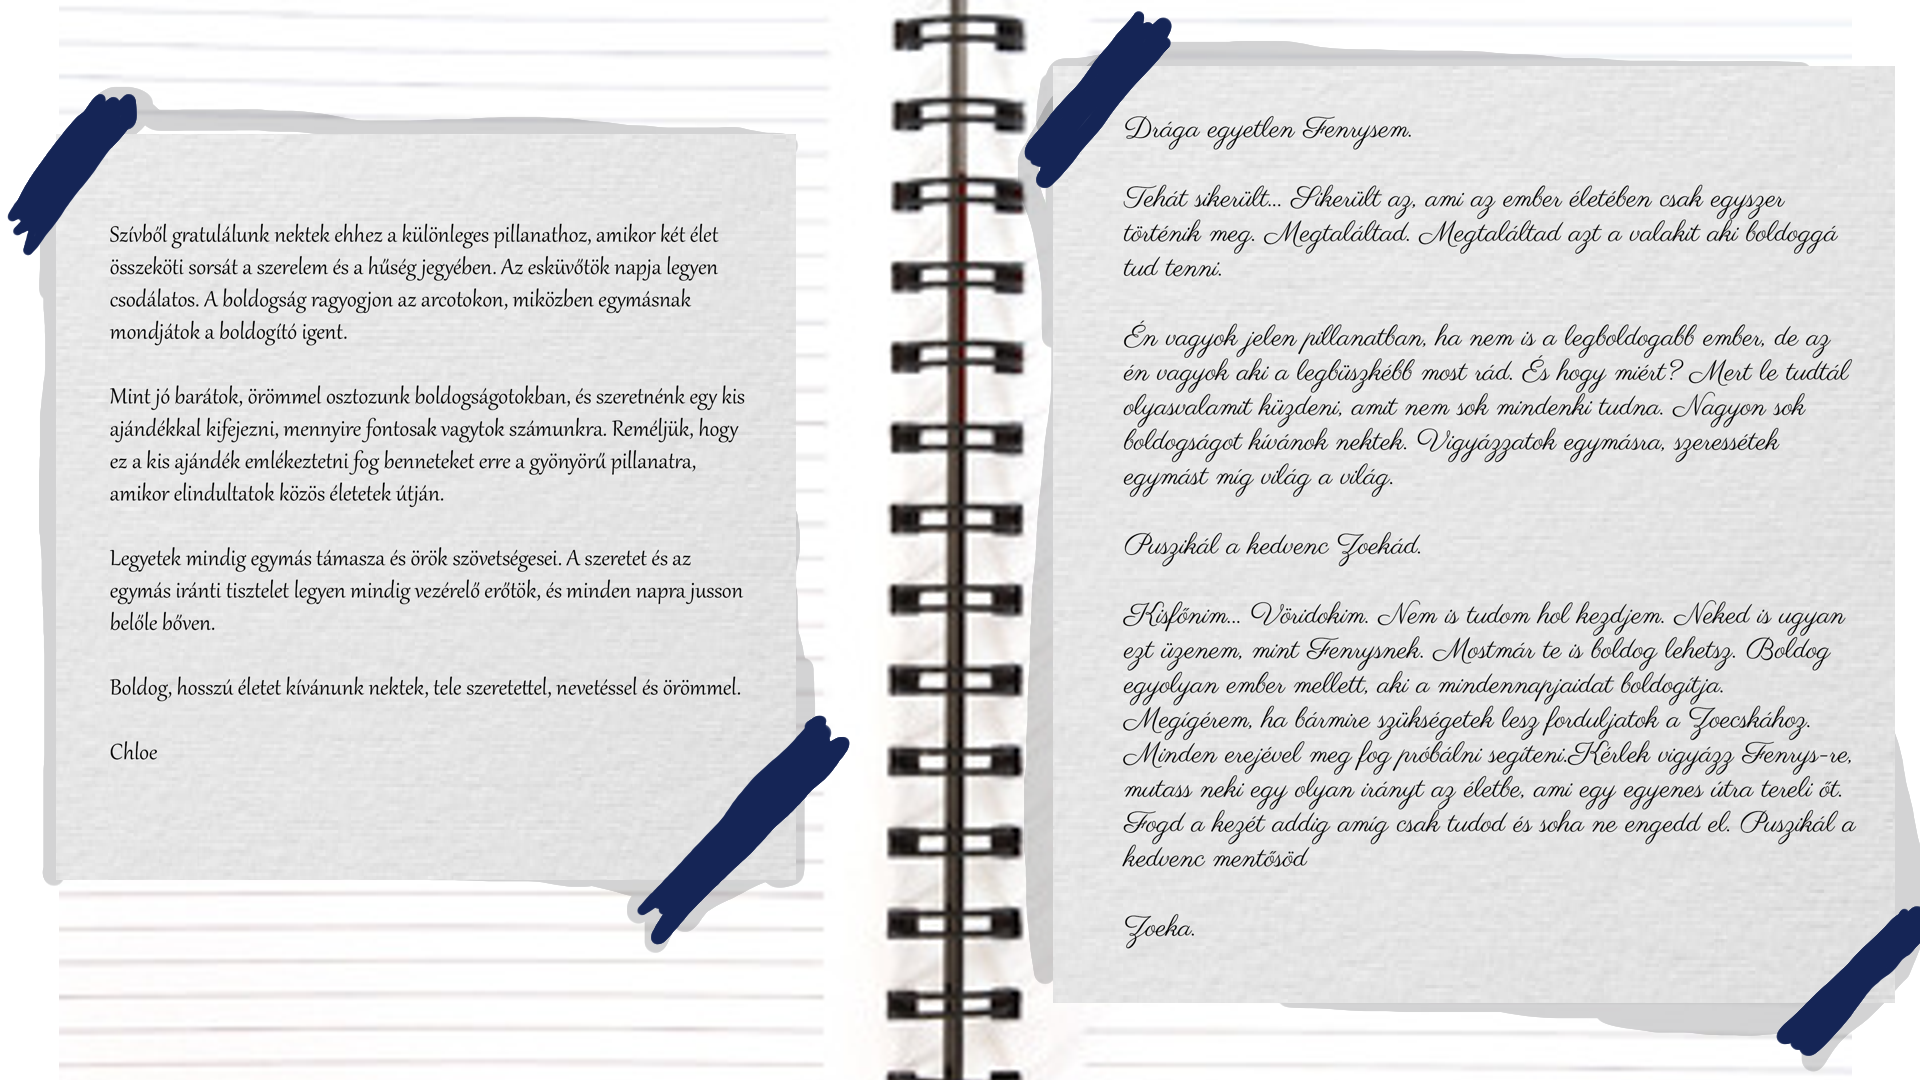 Szívből gratulálunk nektek ehhez a különleges pillanathoz, amikor két élet
összeköti sorsát a szerelem és a hűség jegyében. Az esküvőtök napja legyen
csodálatos. A boldogság ragyogjon az arcotokon, miközben egymásnak
mondjátok a boldogító igent.
Mint jó barátok, örömmel osztozunk boldogságotokban, és szeretnénk egy kis
ajándékkal kifejezni, mennyire fontosak vagytok számunkra. Reméljük, hogy
ez a kis ajándék emlékeztetni fog benneteket erre a gyönyörű pillanatra,
amikor elindultatok közös életetek útján.
Legyetek mindig egymás támasza és örök szövetségesei. A szeretet és az
egymás iránti tisztelet legyen mindig vezérelő erőtök, és minden napra jusson
belőle bőven.
Boldog, hosszú életet kívánunk nektek, tele szeretettel, nevetéssel és örömmel.
Chloe
Drága egyetlen Fenrysem.
Tehát sikerült... Sikerült az, ami az ember életében csak egyszer
történik meg. Megtaláltad. Megtaláltad azt a valakit aki boldoggá
tud tenni.
Én vagyok jelen pillanatban, ha nem is a legboldogabb ember, de az
én vagyok aki a legbüszkébb most rád. És hogy miért? Mert le tudtál
olyasvalamit küzdeni, amit nem sok mindenki tudna. Nagyon sok
boldogságot kívánok nektek. Vigyázzatok egymásra, szeressétek
egymást míg világ a világ.
Puszikál a kedvenc Zoekád.
Kisfőnim... Vöridokim. Nem is tudom hol kezdjem. Neked is ugyan
ezt üzenem, mint Fenrysnek. Mostmár te is boldog lehetsz. Boldog
egyolyan ember mellett, aki a mindennapjaidat boldogítja.
Megígérem, ha bármire szükségetek lesz forduljatok a Zoecskához.
Minden erejével meg fog próbálni segíteni.Kérlek vigyázz Fenrys-re,
mutass neki egy olyan irányt az életbe, ami egy egyenes útra tereli őt.
Fogd a kezét addig amíg csak tudod és soha ne engedd el. Puszikál a
kedvenc mentősöd
Zoeka.